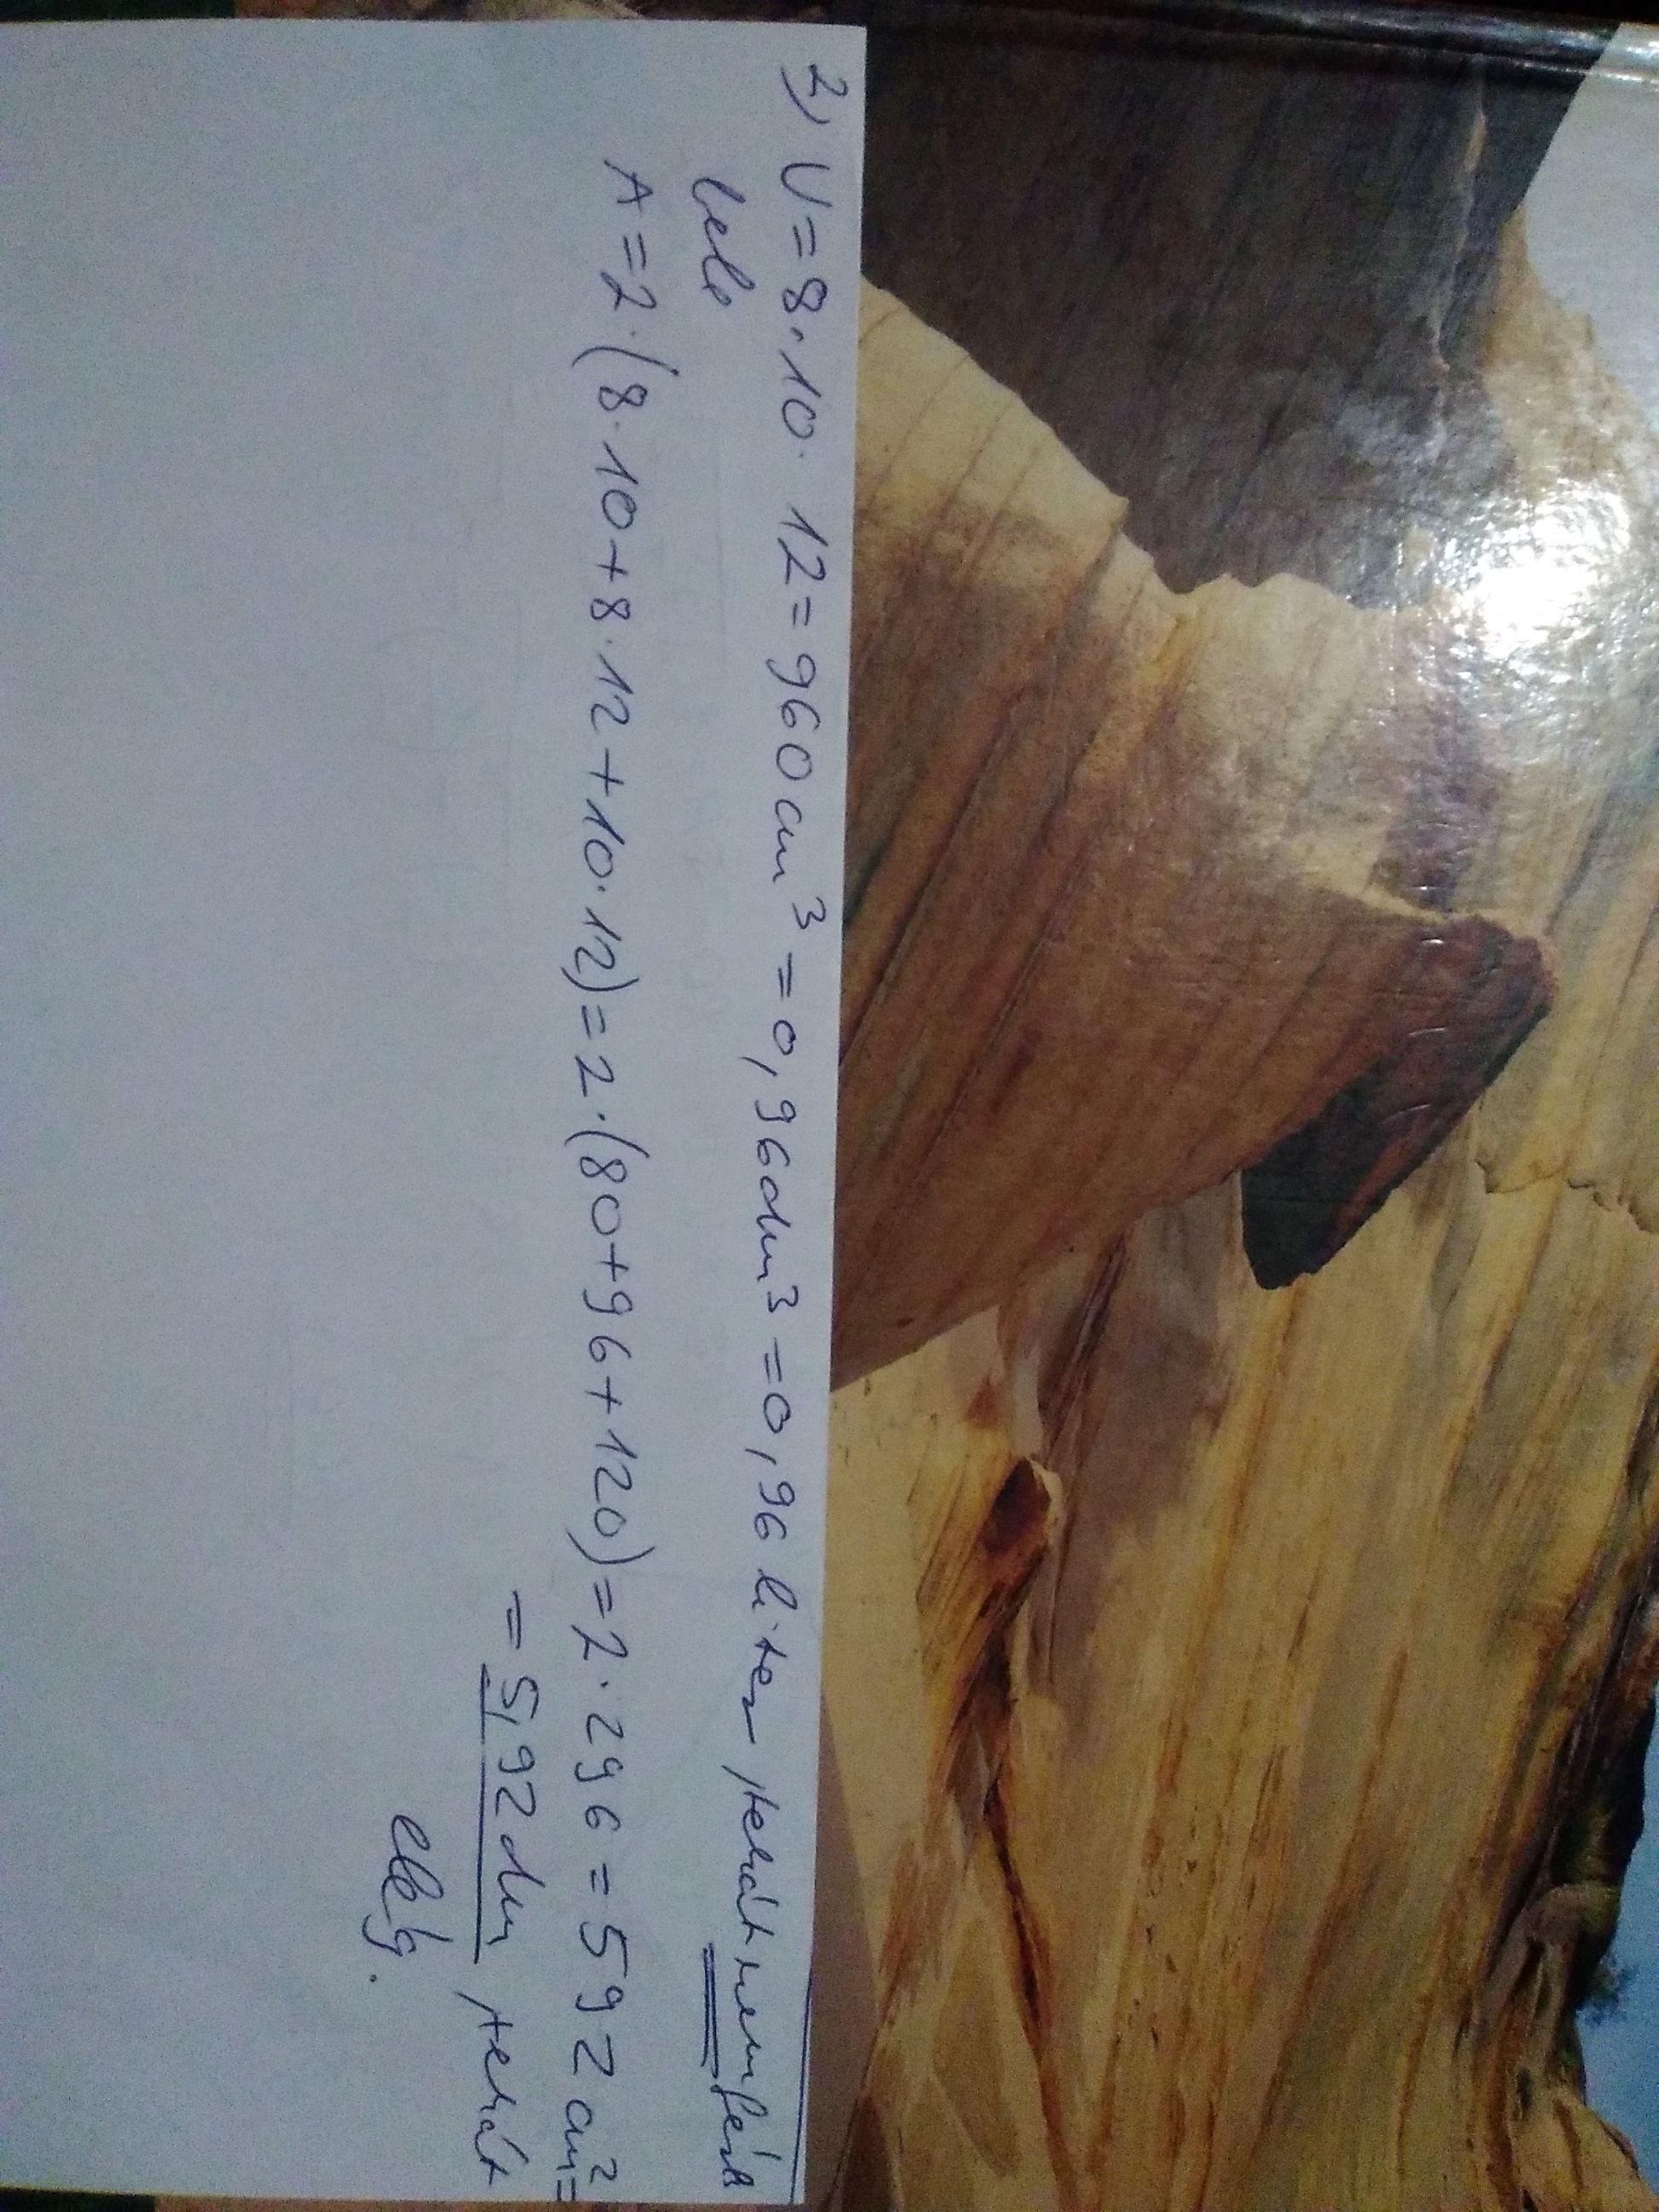 2) V=8·10·12=960cm³=0,96dm³=0,96 liter tehát nem fér
bele
A=2·(8·10+8·12+10·12)=2·(80+96+120)=2·296=592cm²=
=5,92dm tehát
elég.